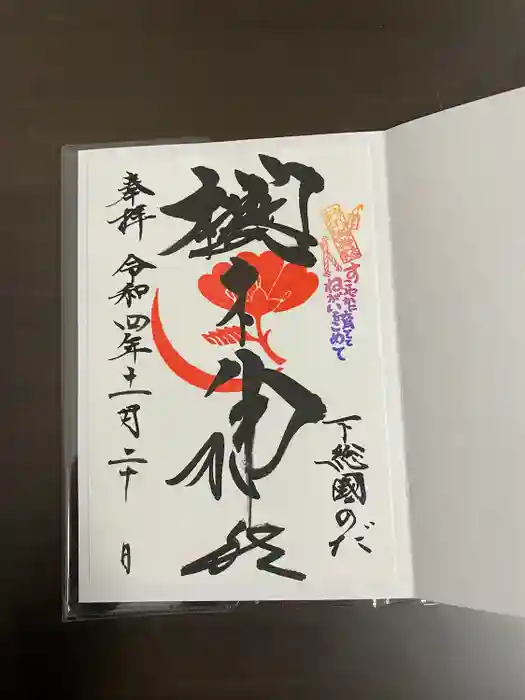 すこやかに育てて
ねがいをこめて
下総國のだ
櫻木神社
奉拝 令和四年十一月二十日